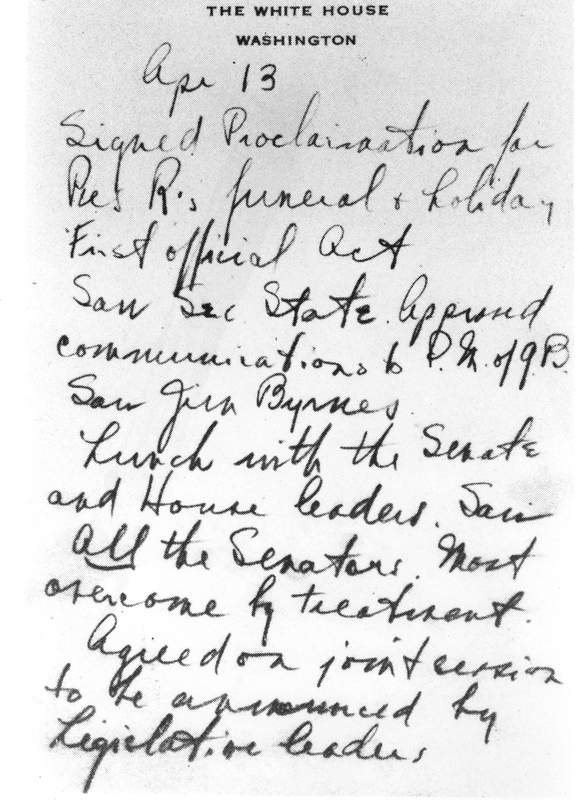 THE WHITE HOUSE
WASHINGTON
Apr 13
Signed Proclamation for
Pres R's funeral & holiday
First official Act
Saw Sec State. Approved
communications to P.M. of G.B.
Saw Jim Byrnes.
Lunch with the Senate
and House leaders. Saw
All the Senators. Most
overcome by treatment.
Agreed on joint session
to be announced by
Legislative leaders